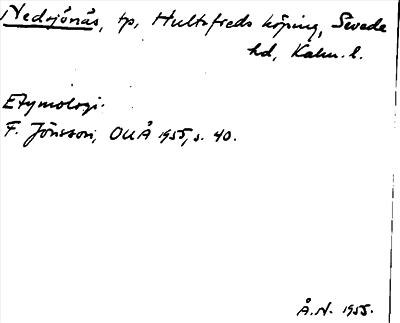 Nedsjönäs, tp, Hultsfreds köping, Sevede
hd, Kalm. l.
Etymologi.
F. Jönsson, OUÅ 1955, s. 40.
Å.N. 1955.